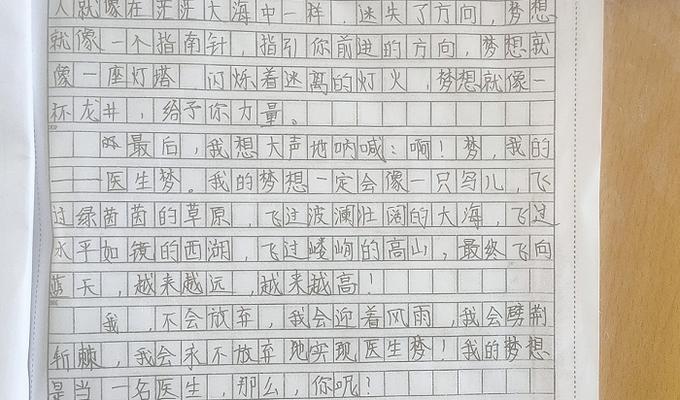 人就像在茫茫大海中一样，迷失了方向，梦想
就像一个指南针，指引你前进的方向，梦想就
像一座灯塔，闪烁着迷离的灯火，梦想就像一
杯龙井，给予你力量。
最后，我想大声地呐喊：啊！梦，我的
——医生梦。我的梦想一定会像一只鸟儿，飞
过绿茵茵的草原，飞过波澜壮阔的大海，飞过
水平如镜的西湖，飞过嵝峋的高山，最终飞向
蓝天，越来越远，越来越高！
我，不会放弃，我会迎着风雨，我会劈荆
斩棘，我会永不放弃地实现医生梦！我的梦想
是当一名医生，那么，你呢？